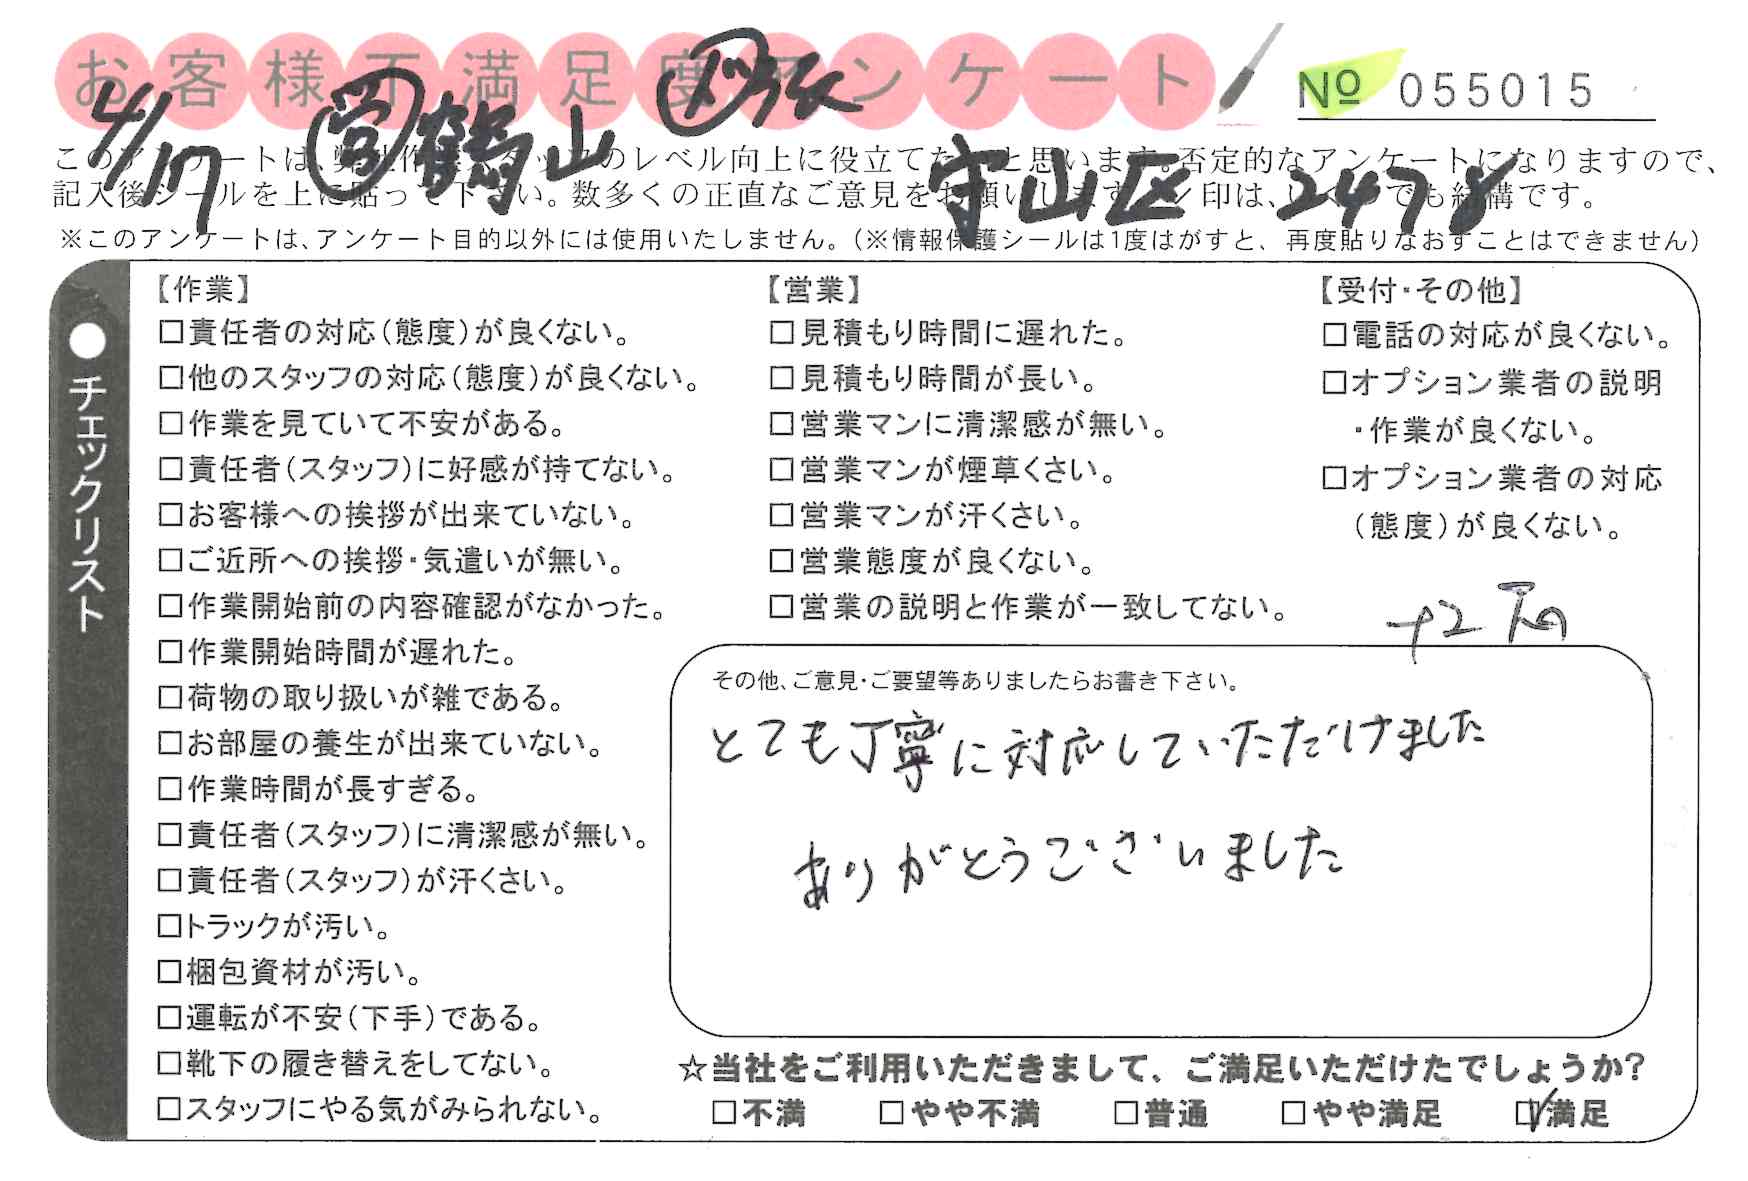 お客様不満足度アンケート
№ 055015
4/17 営 鶴山
守山区 2478
このアンケートは、弊社作業スタッフのレベル向上に役立てたいと思います。否定的なアンケートになりますので、
記入後シールを上に貼って下さい。数多くの正直なご意見をお願いします。レ印は、いくつでも結構です。
※このアンケートは、アンケート目的以外には使用いたしません。(※情報保護シールは1度はがすと、再度貼りなおすことはできません)
●チェックリスト
【作業】
□責任者の対応(態度)が良くない。
□他のスタッフの対応(態度)が良くない。
□作業を見ていて不安がある。
□責任者(スタッフ)に好感が持てない。
□お客様への挨拶が出来ていない。
□ご近所への挨拶・気遣いが無い。
□作業開始前の内容確認がなかった。
□作業開始時間が遅れた。
□荷物の取り扱いが雑である。
□お部屋の養生が出来ていない。
□作業時間が長すぎる。
□責任者(スタッフ)に清潔感が無い。
□責任者(スタッフ)が汗くさい。
□トラックが汚い。
□梱包資材が汚い。
□運転が不安(下手)である。
□靴下の履き替えをしてない。
□スタッフにやる気がみられない。
【営業】
□見積もり時間に遅れた。
□見積もり時間が長い。
□営業マンに清潔感が無い。
□営業マンが煙草くさい。
□営業マンが汗くさい。
□営業態度が良くない。
□営業の説明と作業が一致してない。
【受付・その他】
□電話の対応が良くない。
□オプション業者の説明
・作業が良くない。
□オプション業者の対応
(態度)が良くない。
その他、ご意見・ご要望等ありましたらお書き下さい。
とても丁寧に対応していただけました
ありがとうございました
☆当社をご利用いただきまして、ご満足いただけたでしょうか?
□不満 □やや不満 □普通 □やや満足 ☑満足